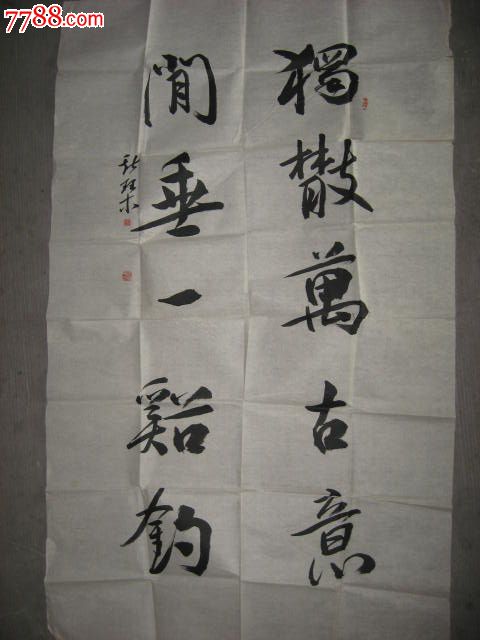 7788.com
獨散萬古意
閒垂一谿釣